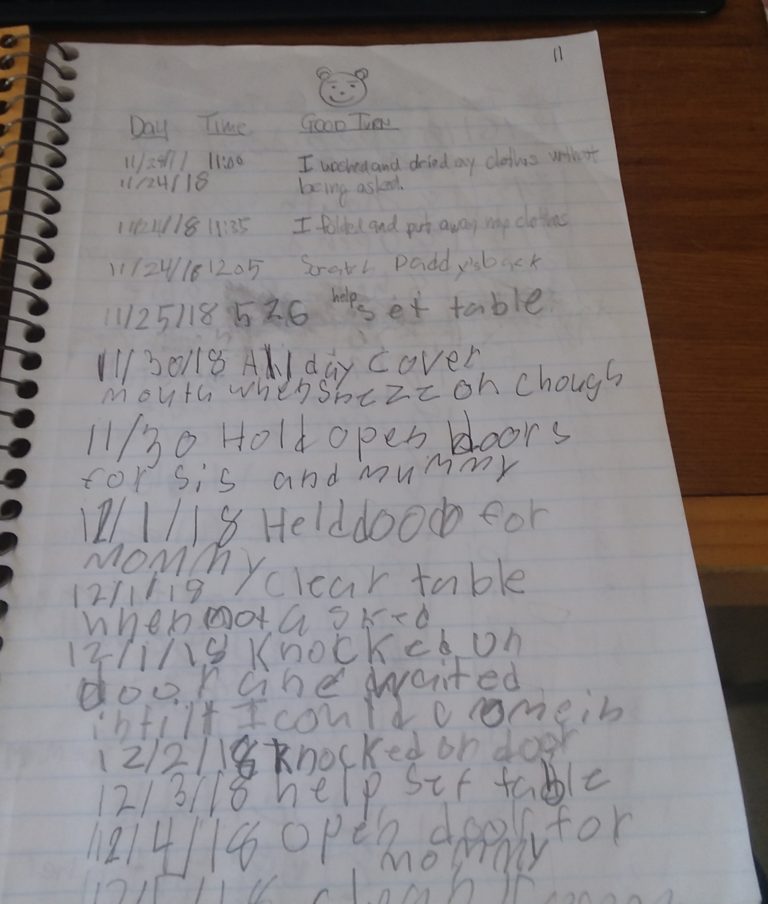 11
Day Time Good Turn
11:00 I washed and dried my clothes without
11/24/18 being asked.
11/24/18 11:35 I folded and put away my clothes
11/24/18 1205 Daddy's back
11/25/18 526 help set table
11/30/18 All day cover
mouth when snezze on chough
11/30 Hold open doors
for sis and mummy
12/1/18 Held door for
mommy
12/1/18 clear table
when not asked
12/1/18 Knocked on
door and waited
intilt I could come in
12/2/18 knocked on door
12/3/18 help set table
12/4/18 open door for
mommy